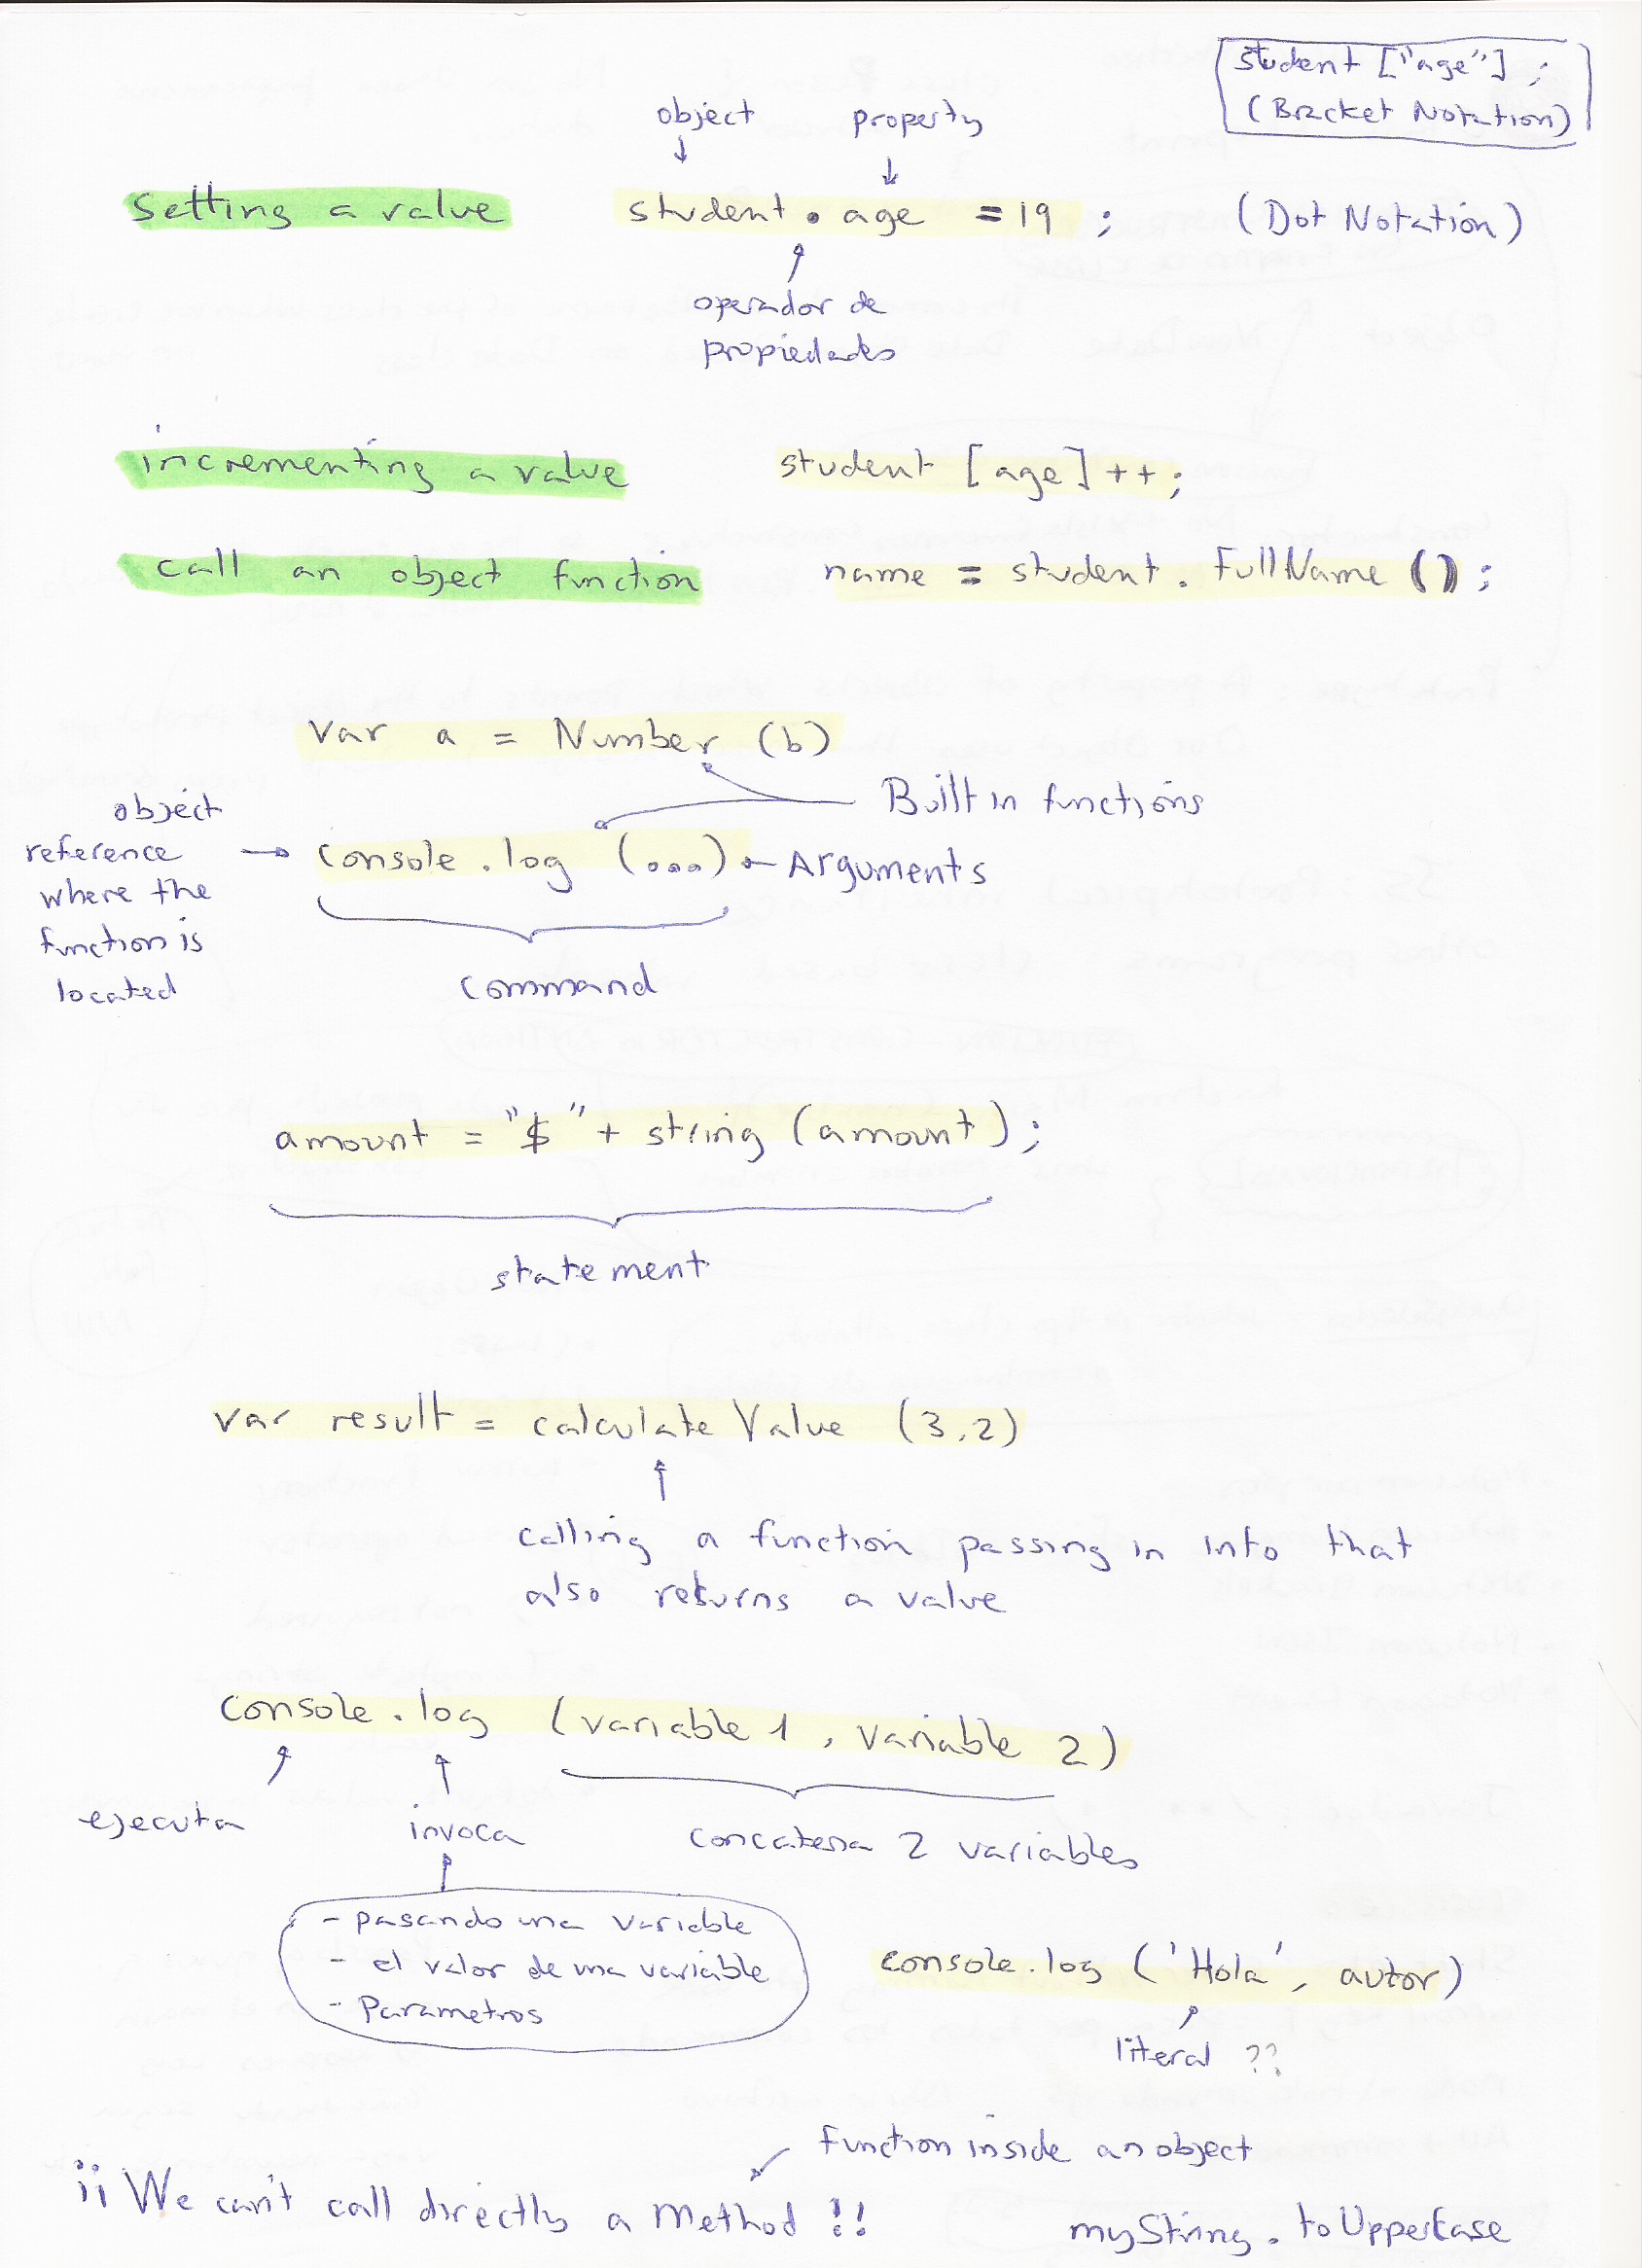 student ["age"] ;
(Bracket Notation)
object property
setting a value student . age = 19 ; (Dot Notation)
operador de
propiedades
incrementing a value student [age]++;
call an object function name = student. FullName ();
var a = Number (b)
Built in functions
object
reference
where the
function is
located
console.log (...) Arguments
command
amount = "$" + string (amount);
statement
var result = calculate Value (3,2)
calling a function passing in info that
also returns a value
console.log (variable 1, variable 2)
ejecuta invoca concatena 2 variables
- pasando una variable
- el valor de una variable
- Parametros
console.log ('Hola', autor)
literal ??
function inside an object
¡¡ We can't call directly a Method !!
myString. toUpperCase